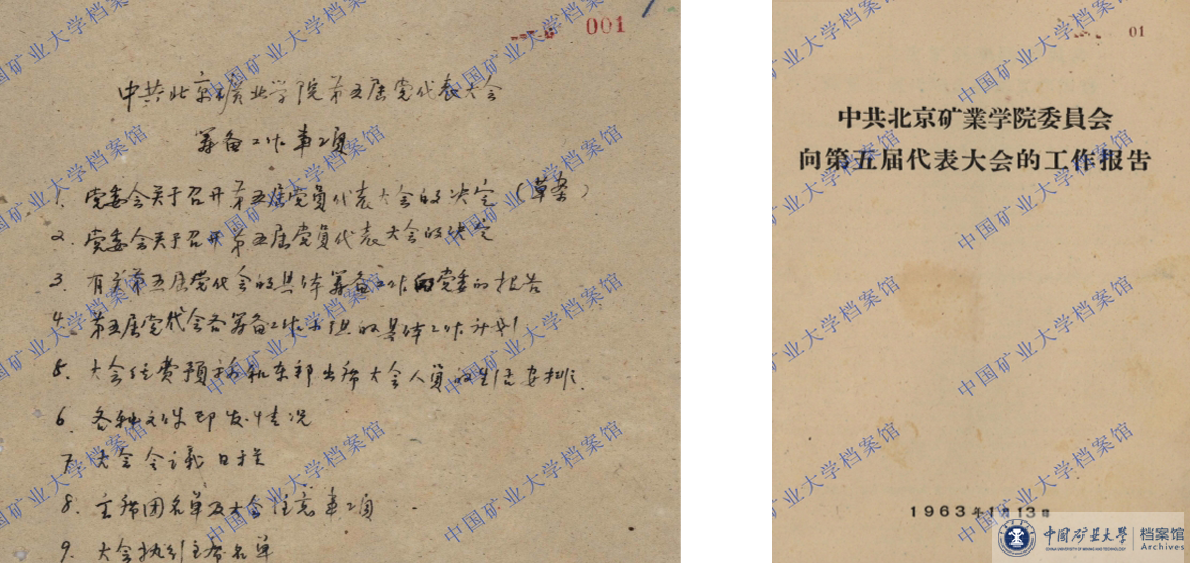 001
中共北京矿业学院第五届党代表大会
筹备工作事项
1. 党委会关于召开第五届党员代表大会的决定（草案）
2. 党委会关于召开第五届党员代表大会的决定
3. 有关第五届党代会的具体筹备工作向党委的报告
4. 第五届党代会各筹备工作小组的具体工作计划
5. 大会经费预
出席大会人员的生活安排
6. 各种文件印发情况
7. 大会会议日程
8. 主席团名单及大会注意事项
9. 大会执行主席名单
01
中共北京矿業学院委員会
向第五届代表大会的工作报告
1963年1月13日
中国矿业大学档案馆
中国矿业大学
CHINA UNIVERSITY OF MINING AND TECHNOLOGY
档案馆
Archives